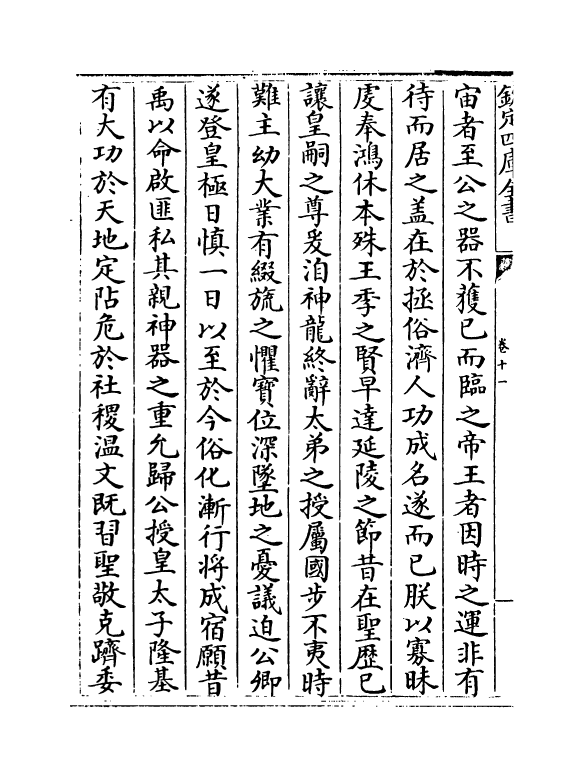 欽定四庫全書
卷十一
宙者至公之器不獲已而臨之帝王者因時之運非有
待而居之盖在於拯俗濟人功成名遂而已朕以寡昧
虔奉鴻休本殊王季之賢早達延陵之節昔在聖歴已
讓皇嗣之尊爰洎神龍終辭太弟之授屬國步不夷時
難主幼大業有綴旒之懼寳位深墜地之憂議迫公卿
遂登皇極日慎一日以至於今俗化漸行將成宿願昔
禹以命啟匪私其親神器之重允歸公授皇太子隆基
有大功於天地定阽危於社稷温文既習聖敬克躋委